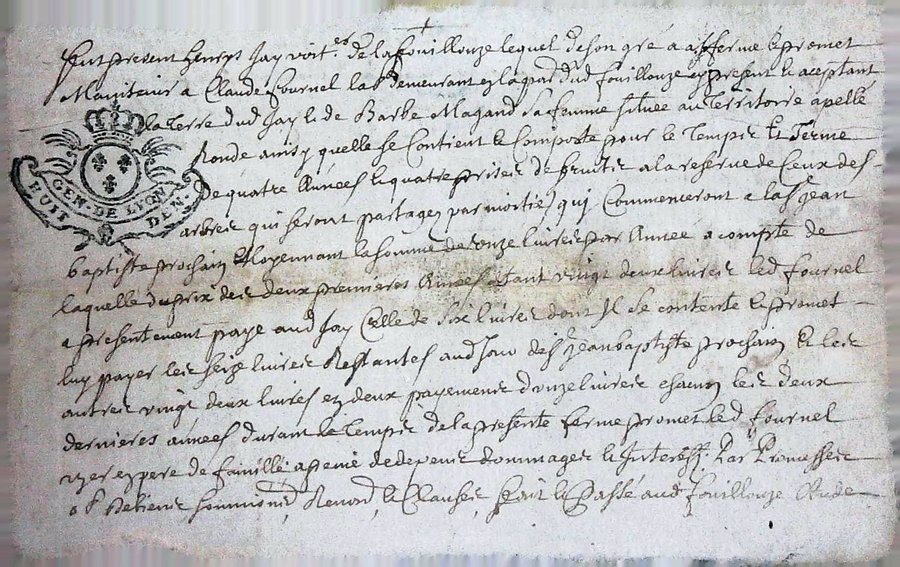 Fut present Henrys Jay voit.er de la fouillouze lequel de son gré a afferme et promet
Maintenir a Claude fournel lab demeurant en la par dud fouillouze cy present et aceptant
la Terre dud Jay et de Barbe Magand sa femme située au Territoire apellé
Ronde ainsy quelle se Contient et Comporte pour le Tempts et Terme
De quatre Années et quatre prises de fruits a la reserve de Ceux des
arbres qui seront partagez par moitié qui Commenceront a la St Jean
baptiste prochain Moyennant la somme de onze livres par Année a compte de
laquelle du prix des deux premieres Années estant vingt deux livres led fournel
a presentement payé aud Jay Celle de six livres dont Il se contente et promet
luy payer les seize livres Restantes aud Jour de St Jean baptiste prochain Et les
autres vingt deux livres en deux payements donze livres chacun les deux
dernieres années durant Le Temps de la presente ferme promet led fournel
user en pere de famille a peine de depens dommages et Interest Par Promesses
obt Renond et Clauses fait et Passé aud fouillouze
GEN. DE LYON
HUIT DEN.